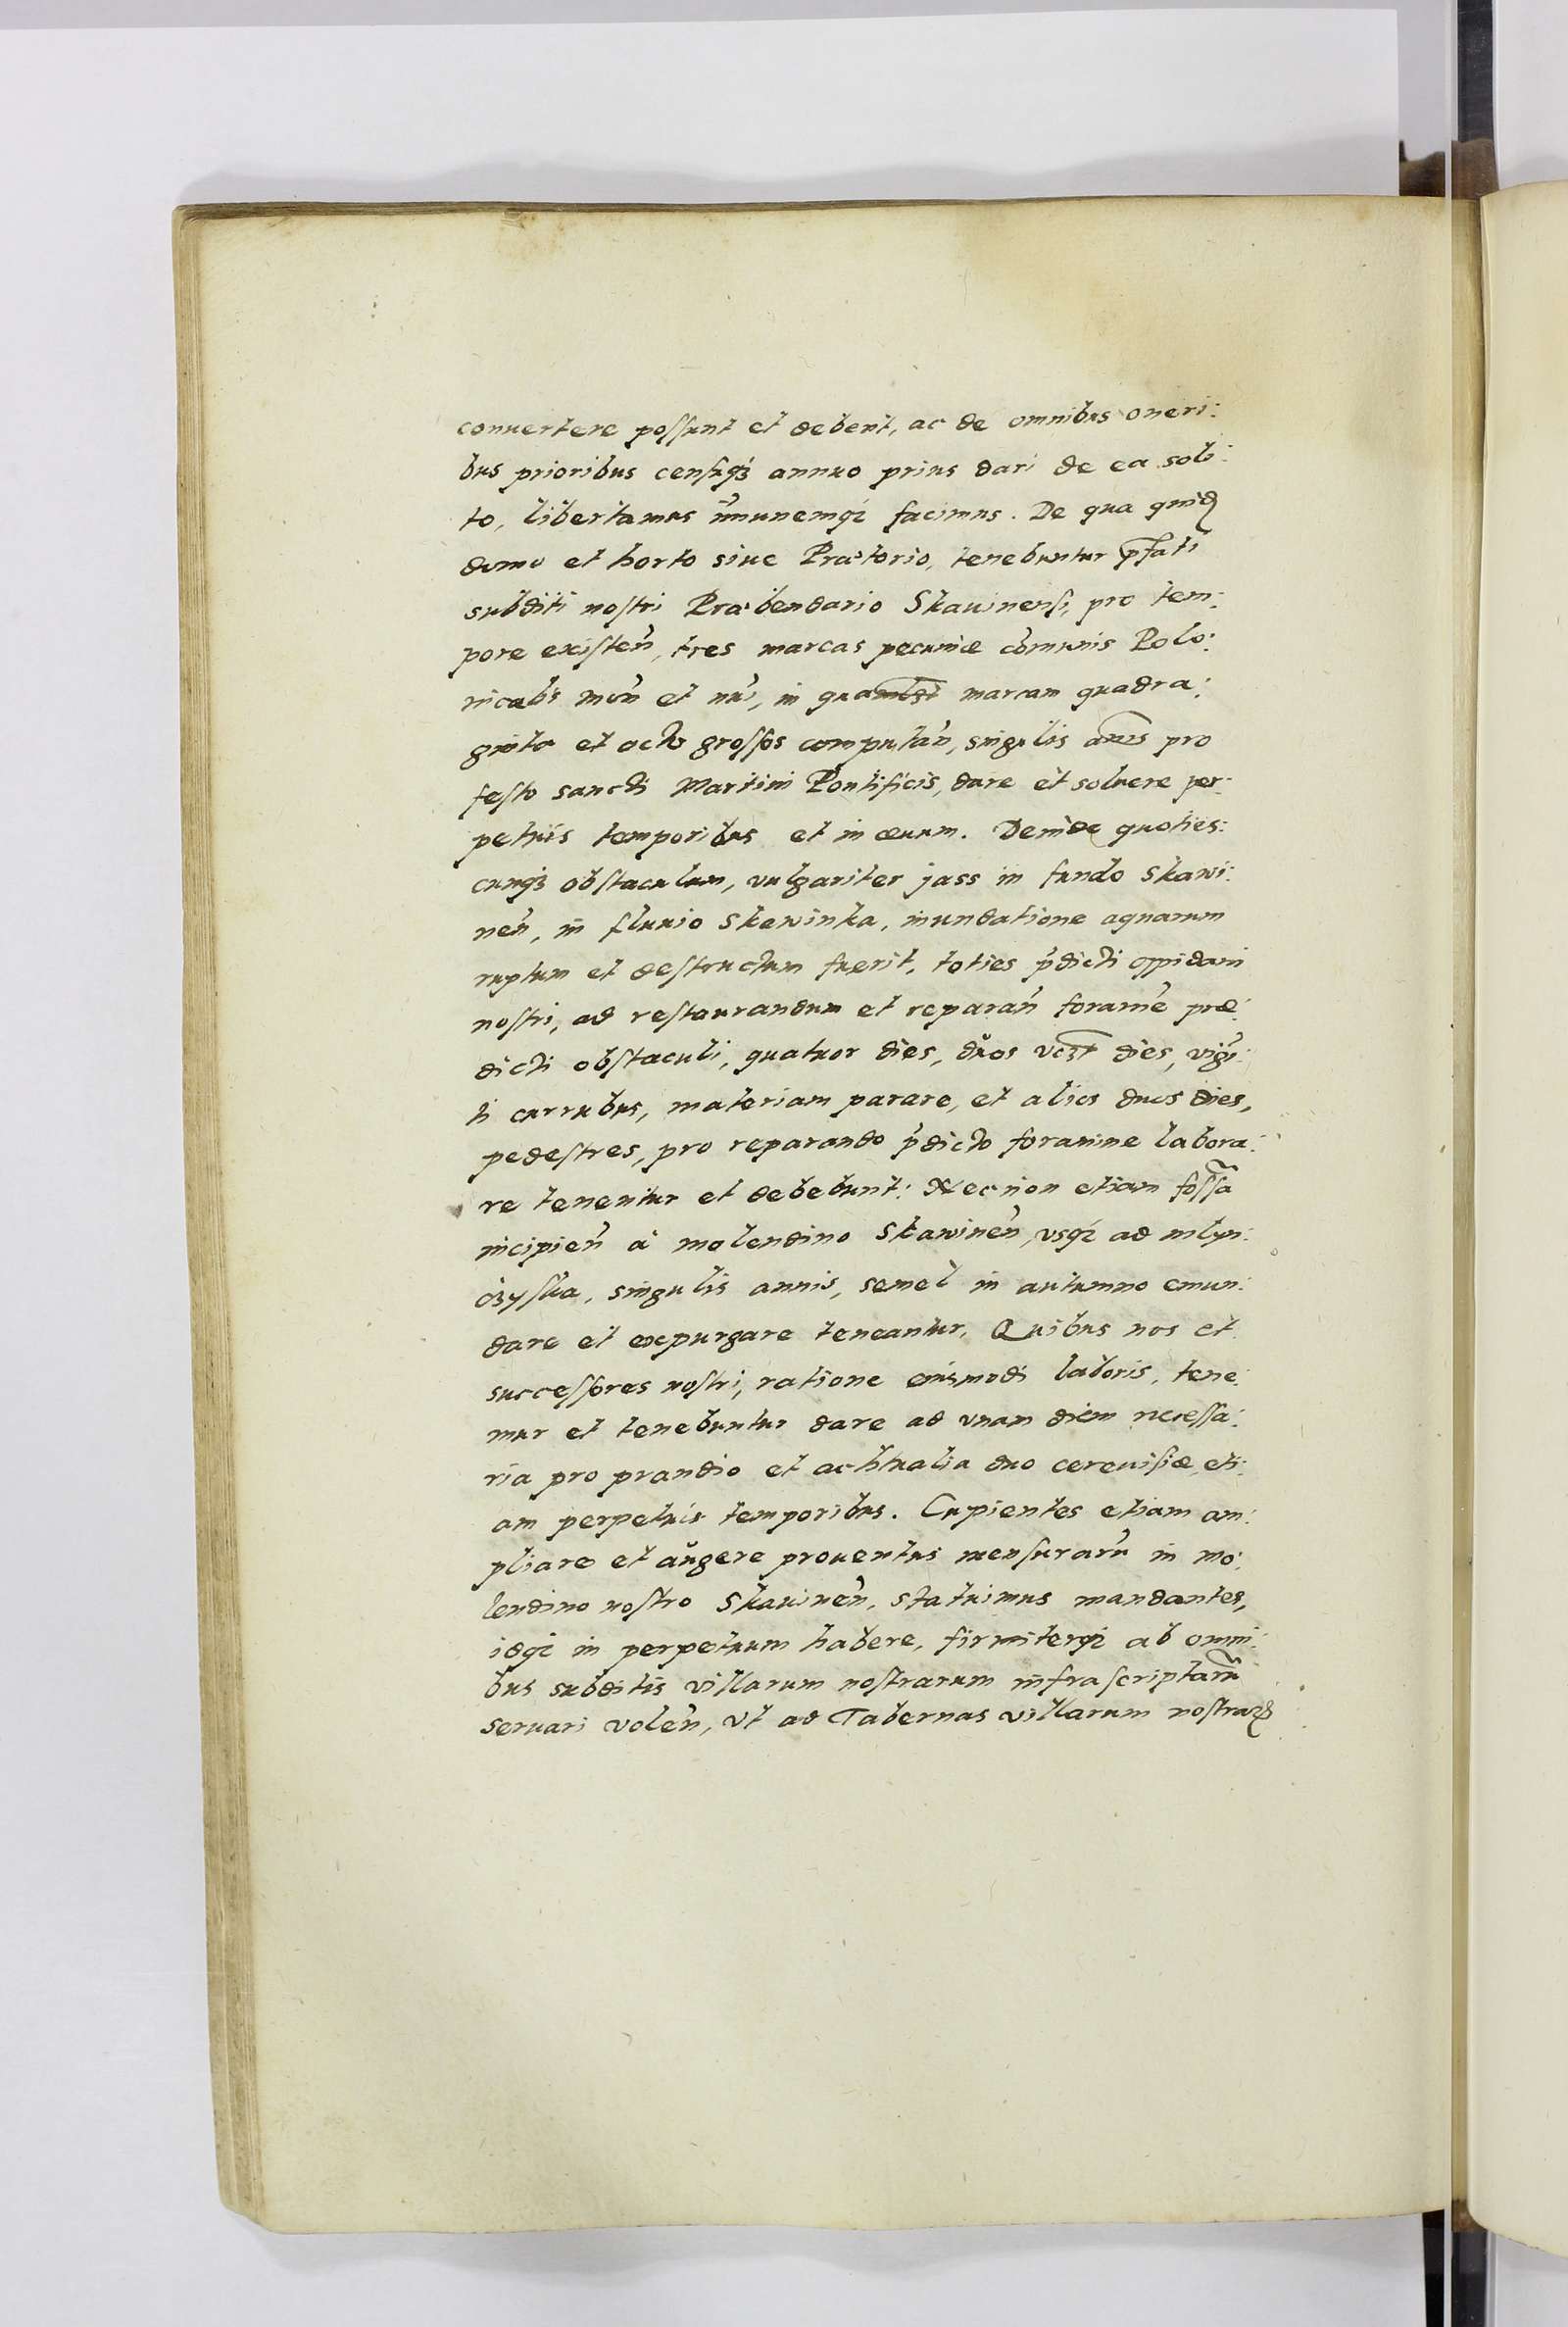 conuertere possunt et debent, ac de omnibus oneri:
bus prioribus censuq₃ annuo prius dari de ea soli:
to, libertamus im̃unemq₃ facimus. De qua quidẽ
domo et horto siue Prætorio, tenebuntur p̃fati
subditi nostri Præbendario Skawinensi, pro tem:
pore existeñ, tres marcas pecuniæ com̃unis Polo:
nicalis moñ et nũi, in quamlꝫt marcam quadra:
ginta et octo grossos computañ, singulis annis pro
festo sancti Martini Pontificis, dare et soluere per:
petuis temporibus et in æuum. Deinde quoties:
cunq₃ obstaculum, vulgariter jass in fundo Skawi:
neñ, in fluuio Skawinka, inundatione aquarum
ruptum et destructum fuerit, toties p̃dicti oppidani
nostri, ad restaurandum et reparañ foramẽ præ:
dicti obstaculi, quatuor dies, duos vꝫt dies, vigĩ:
ti curribus, materiam parare, et alios duos dies,
pedestres, pro reparando p̃dicto foramine labora:
re tenentur et debebunt: Necnon etiam fossã
incipieñ à molendino Skawineñ, vsq₃ ad mlyn:
czyska, singulis annis, semel in autumno emun:
dare et expurgare teneantur. Quibus nos et
successores nostri, ratione eiusmodi laboris, tene:
mur et tenebuntur dare ad vnam diem necessa:
ria pro prandio et achtualia duo cereuisiæ, eti:
am perpetuis temporibus. Cupientes etiam am:
pliare et augere prouentus mensurarũ in mo:
lendino nostro Skawineñ, statuimus mandantes,
idq₃ in perpetuum habere, firmiterq₃ ab omni:
bus subditis villarum nostrarum infrascriptarũ
seruari voleñ, vt ad Tabernas villarum nostraꝝ